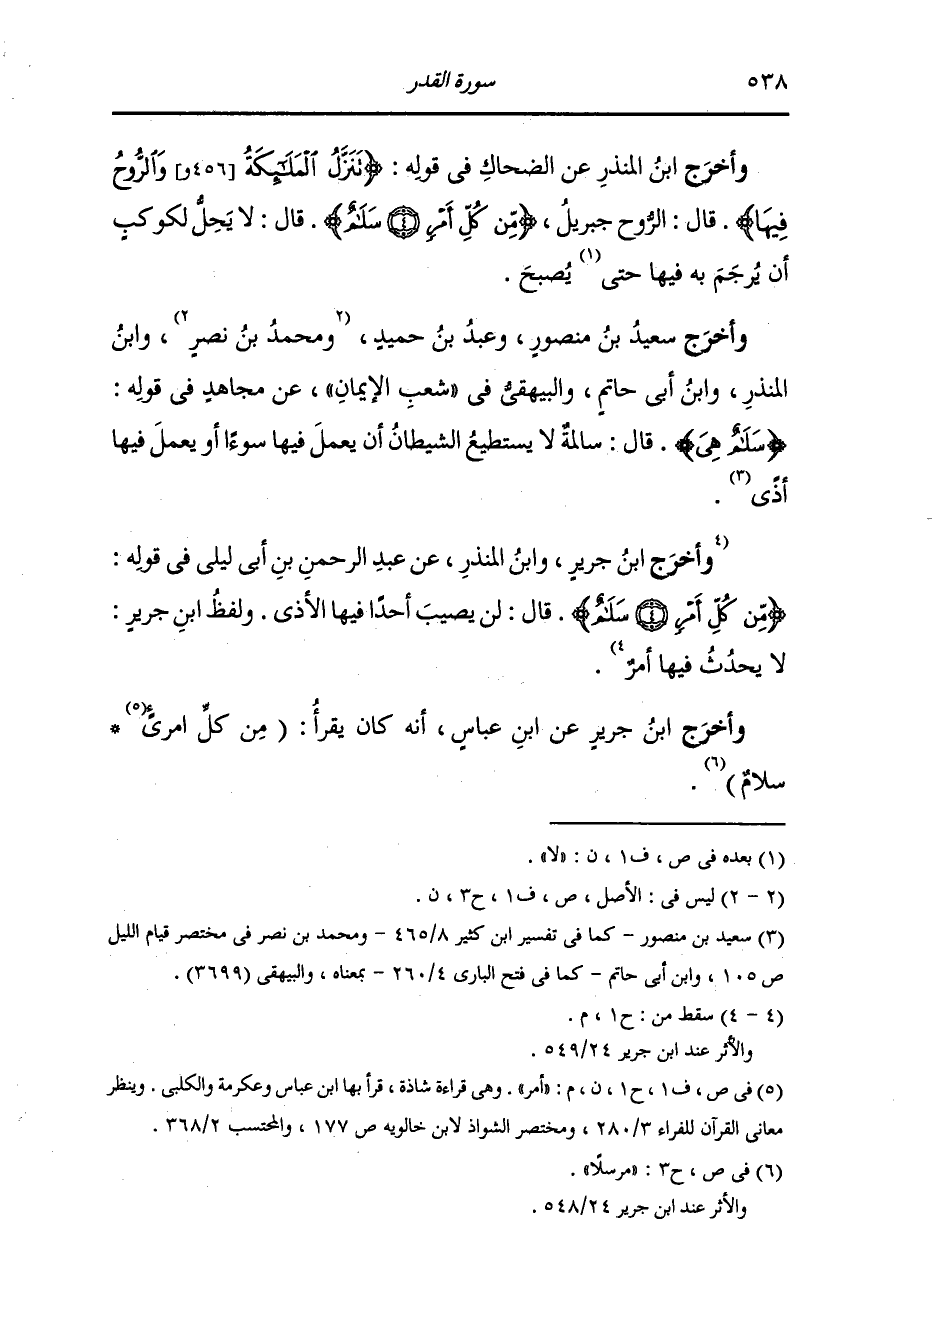 ٥٣٨
سورة القدر
وأخرَج ابنُ المنذرِ عن الضحاكِ فى قولِه : ﴿تَنَزَّلُ ٱلْمَلَـٰٓئِكَةُ [٤٥٦و] وَٱلرُّوحُ
فِيهَا﴾ . قال : الرُّوح جبريلُ ، ﴿مِّن كُلِّ أَمْرٍ ۝٤ سَلَـٰمٌ﴾ . قال : لا يَحِلُّ لكوكبٍ
أن يُرجَمَ به فيها حتى(١) يُصبحَ .
وأخرَج سعيدُ بنُ منصورٍ ، وعبدُ بنُ حميدٍ ، (٢ومحمدُ بنُ نصرٍ٢) ، وابنُ
المنذرِ ، وابنُ أبى حاتمٍ ، والبيهقىُّ فى «شعبِ الإيمانِ» ، عن مجاهدٍ فى قولِه :
﴿سَلَـٰمٌ هِىَ﴾ . قال : سالمةٌ لا يستطيعُ الشيطانُ أن يعملَ فيها سوءًا أو يعملَ فيها
أذًى(٣) .
(٤وأخرَج ابنُ جريرٍ ، وابنُ المنذرِ ، عن عبدِ الرحمنِ بنِ أبى ليلى فى قولِه :
﴿مِّن كُلِّ أَمْرٍ ۝٤ سَلَـٰمٌ﴾ . قال : لن يصيبَ أحدًا فيها الأذى . ولفظُ ابنِ جريرٍ :
لا يحدُثُ فيها أمرٌ٤) .
وأخرَج ابنُ جريرٍ عن ابنِ عباسٍ ، أنه كان يقرأُ : ( مِن كلِّ امرئٍ(٥) *
سلامٌ )(٦) .
(١) بعده فى ص ، ف١ ، ن : «لا» .
(٢ - ٢) ليس فى : الأصل ، ص ، ف١ ، ح٣ ، ن .
(٣) سعيد بن منصور - كما فى تفسير ابن كثير ٤٦٥/٨ - ومحمد بن نصر فى مختصر قيام الليل
ص ١٠٥ ، وابن أبى حاتم - كما فى فتح البارى ٢٦٠/٤ - بمعناه ، والبيهقى (٣٦٩٩) .
(٤ - ٤) سقط من : ح١ ، م .
والأثر عند ابن جرير ٥٤٩/٢٤ .
(٥) فى ص ، ف١ ، ح١ ، ن ، م : «أمر» . وهى قراءة شاذة ، قرأ بها ابن عباس وعكرمة والكلبى . وينظر
معانى القرآن للفراء ٢٨٠/٣ ، ومختصر الشواذ لابن خالويه ص ١٧٧ ، والمحتسب ٣٦٨/٢ .
(٦) فى ص ، ح٣ : «مرسلًا» .
والأثر عند ابن جرير ٥٤٨/٢٤ .